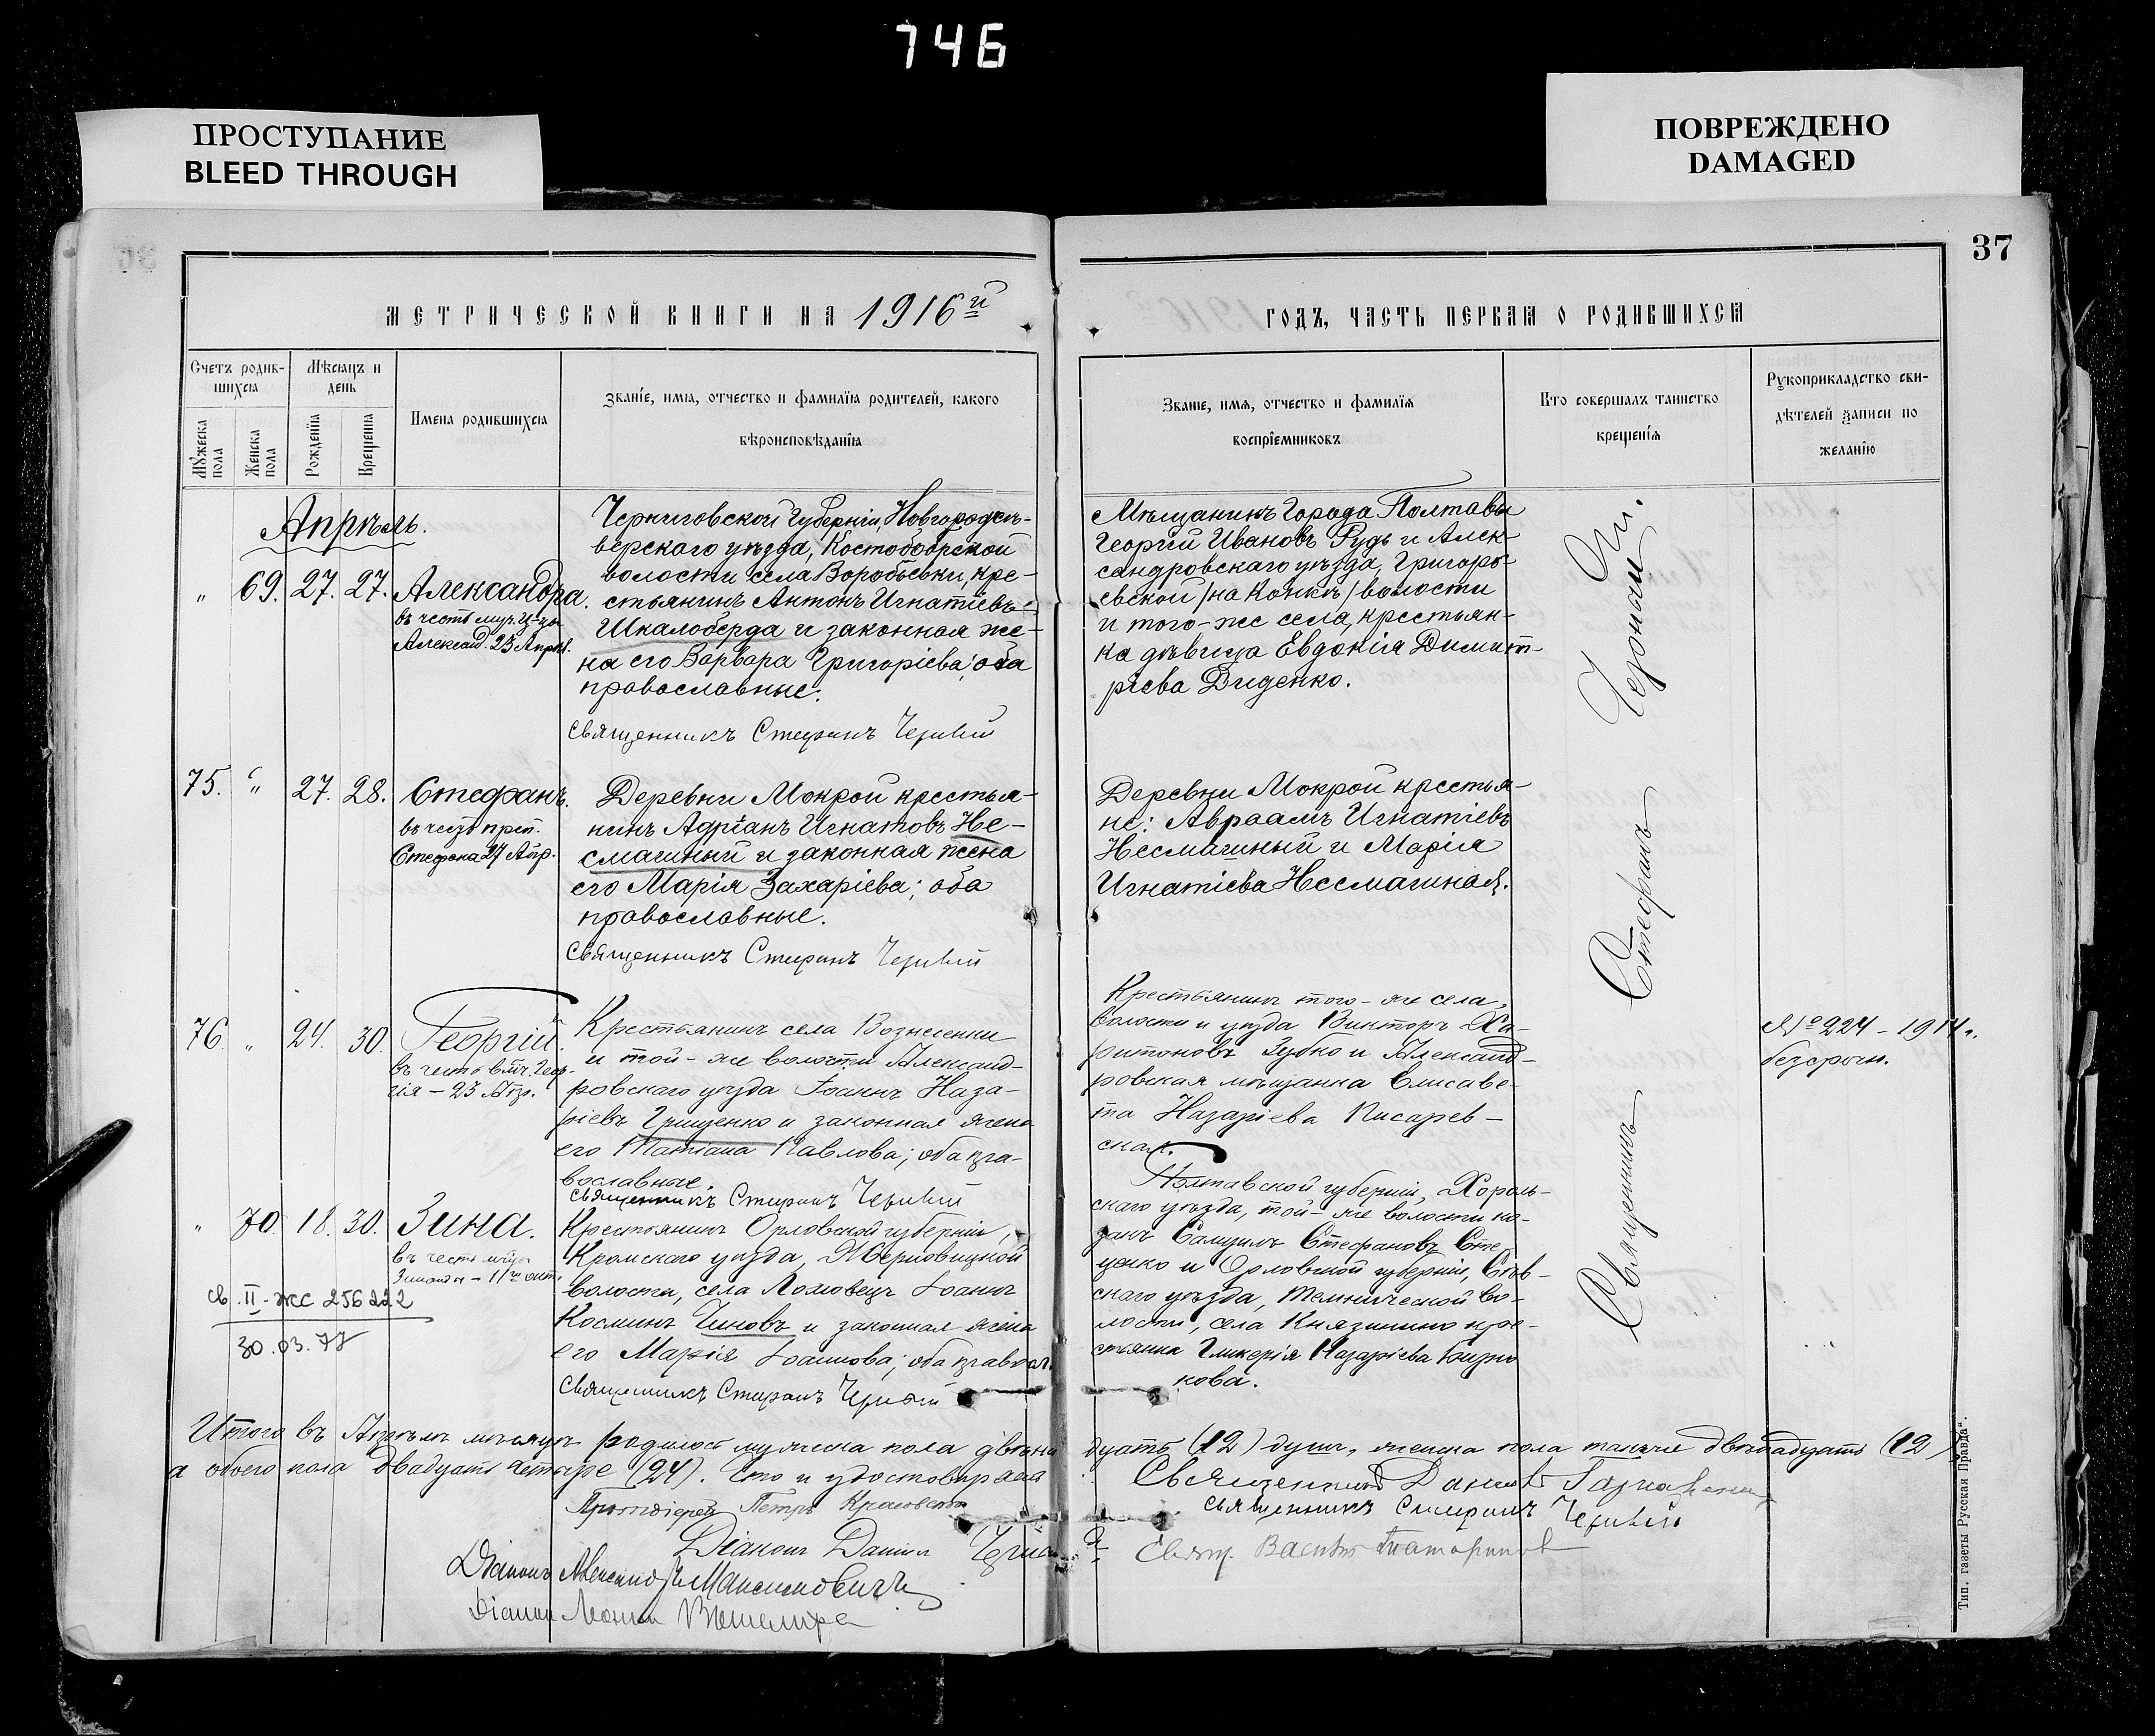 746
ПРОСТУПАНИЕ
BLEED THROUGH
ПОВРЕЖДЕНО
DAMAGED
37
МЕТРИЧЕСКОЙ КНИГИ НА 1916й
ГОДЪ, ЧАСТЬ ПЕРВАЯ О РОДИВШИХСЯ
Счетъ родив-
шихся
Мужеска пола
Женска пола
Мѣсяцъ и
день
Рожденія
Крещенія
Имена родившихся
Званіе, имя, отчество и фамилія родителей, какого
вѣроисповѣданія
Званіе, имя, отчество и фамилія
воспріемниковъ
Кто совершалъ таинство
крещенія
Рукоприкладство сви-
дѣтелей записи по
желанію
Апрѣль.
„ 69. 27. 27. Александра.
въ честь муч. Ц-цы
Александ. 23 Апрѣл.
Черниговской губерніи, Новгородсѣ-
верскаго уѣзда, Костобобрской
волости села Воробьевки, кре-
стьянинъ Антонъ Игнатіевъ
Шкалоберда и законная же-
на его Варвара Григоріева; оба
православные.
Священникъ Стефанъ
Мѣщанинъ Города Полтавы
Георгій Ивановъ Рудь и Алек-
сандровскаго уѣзда, Григорь-
евской /на Конкѣ/ волости
и того-же села, крестьян-
ка дѣвица Евдокія Димит-
ріева Диденко.
75. „ 27. 28. Стефанъ.
въ честь преп.
Стефана 27 Апр.
Деревни Мокрой крестья-
нинъ Адріанъ Игнатовъ Не-
смашный и законная жена
его Марія Захаріева; оба
православные.
Священникъ Стефанъ
Деревни Мокрой крестья-
не: Авраамъ Игнатіевъ
Несмашный и Марія
Игнатіева Несмашная.
76. „ 24. 30. Георгій.
въ честь влмч. Геор-
гія – 23 Апр.
Крестьянинъ села Вознесенки
и той-же волости Александ-
ровскаго уѣзда Іоаннъ Наза-
ріевъ Грищенко и законная жена
его Татіана Павлова; оба пра-
вославные.
Священникъ Стефанъ
Крестьянинъ того-же села,
волости и уѣзда Викторъ Ха-
ритоновъ Зубко и Александ-
ровская мѣщанка Елисаве-
та Назаріева Писарев-
ская.
№ 224 – 1914 г.
„ 70. 18. 30. Зина.
въ честь мцы
Зинаиды – 11го окт.
св. II-жс 256222
30.03.77
Крестьянинъ Орловской губерніи,
Кромскаго уѣзда,
волости, села Ломовецъ Іоаннъ
Косминъ Чиновъ и законная жена
его Марія Іоаннова; оба правосл.
Священникъ Стефанъ
Полтавской губерніи, Хороль-
скаго уѣзда, той-же волости ка-
закъ Самуилъ Стефановъ Сте-
ценко и Орловской губерніи, Сѣв-
скаго уѣзда, волости, села Княгинино кре-
стьянка Гликерія Назаріева Бирю-
кова.
Священникъ Стефанъ
Итого въ Апрѣлѣ мѣсяцѣ родилось мужеска пола двѣна-
дцать (12) душъ, женска пола также двѣнадцать (12)
а обоего пола двадцать четыре (24). Что и удостовѣряемъ
Протоіерей Петръ
Священникъ Даніилъ
Священникъ Стефанъ
Діаконъ Даніилъ
Свящ.
Діаконъ Александръ Максимовичъ
Діаконъ
Тип. газеты „Русская Правда“.